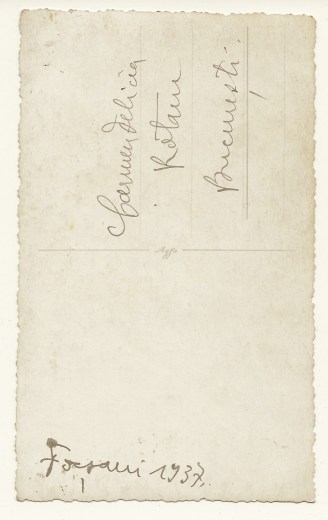 Carmen Delicia
Rotaru
București.
Agfa
Focșani 1937.